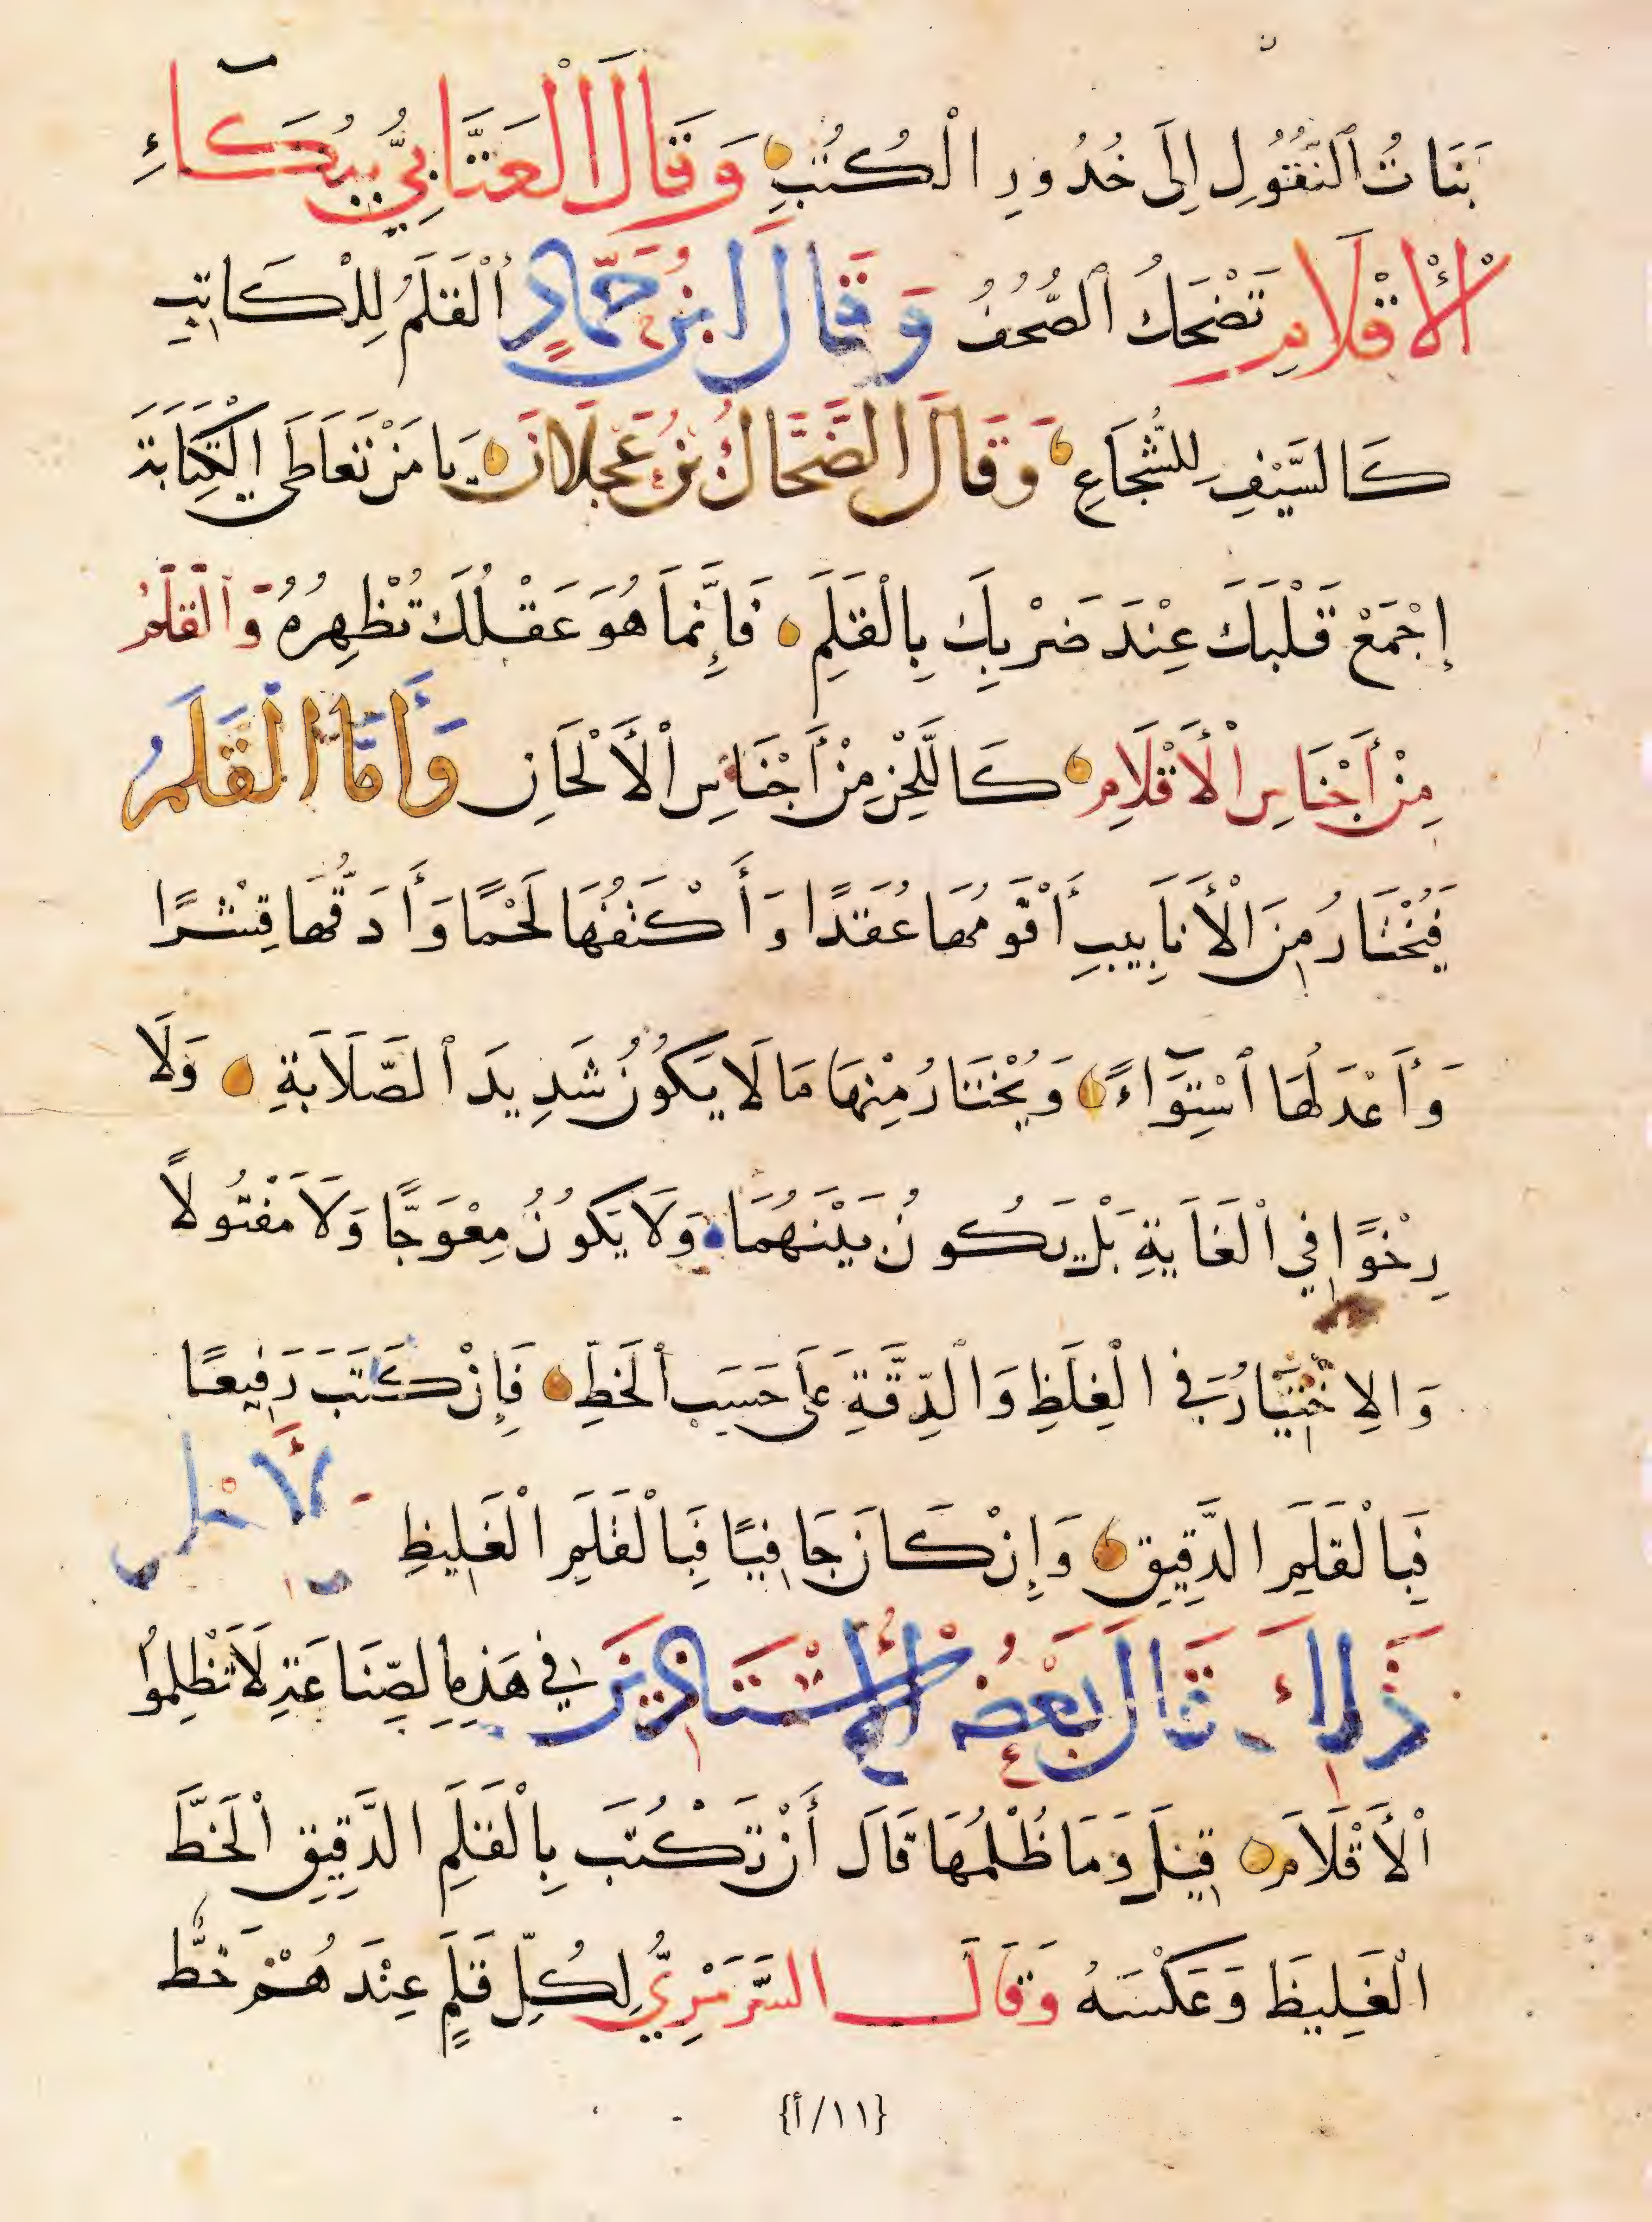 بَنَاتُ ٱلنُّقُولِ إِلَى خُدُورِ الْكُتُبِ وَقَالَ الْعَتَّابِيُّ بِبُكَآءِ
الْأَقْلَامِ تَضْحَكُ ٱلصُّحُفُ وَقَالَ ابْنُ حَمَّادٍ ٱلْقَلَمُ لِلْكَاتِبِ
كَالسَّيْفِ لِلشُّجَاعِ وَقَالَ الضَّحَّاكُ بْنُ عَجْلَانَ يَا مَنْ تَعَاطَى الْكِتَابَةَ
إِجْمَعْ قَلْبَكَ عِنْدَ ضَرْبِكَ بِالْقَلَمِ فَإِنَّمَا هُوَ عَقْلُكَ تُظْهِرُهُ وَٱلْقَلَمُ
مِنْ أَجْنَاسِ الْأَقْلَامِ كَاللَّحْنِ مِنْ أَجْنَاسِ الْأَلْحَانِ وَأَمَّا الْقَلَمُ
فَيُخْتَارُ مِنَ الْأَنَابِيبِ أَقْوَمُهَا عُقَدًا وَأَكْثَفُهَا لَحْمًا وَأَدَقُّهَا قِشْرًا
وَأَعْدَلُهَا ٱسْتِوَآءً وَيُخْتَارُ مِنْهَا مَا لَا يَكُونُ شَدِيدَ ٱلصَّلَابَةِ وَلَا
رِخْوًا فِي الْغَايَةِ بَلْ يَكُونُ بَيْنَهُمَا وَلَا يَكُونُ مِعْوَجًّا وَلَا مَفْتُولًا
وَالِاخْتِيَارُ فِي الْغِلَظِ وَالدِّقَّةِ عَلَى حَسَبِ ٱلْخَطِّ فَإِنْ كَتَبَ رَفِيعًا
فَبِالْقَلَمِ الدَّقِيقِ وَإِنْ كَانَ جَافِيًا فَبِالْقَلَمِ الْغَلِيظِ لِأَجْلِ
ذَلِكَ قَالَ بَعْضُ الْأُسْتَاذِينَ فِي هَذِهِ الصِّنَاعَةِ لَا تَظْلِمُوا
الْأَقْلَامَ قِيلَ وَمَا ظُلْمُهَا قَالَ أَنْ تَكْتُبَ بِالْقَلَمِ الدَّقِيقِ الْخَطَّ
الْغَلِيظَ وَعَكْسَهُ وَقَالَ السَّرْمَرِيُّ لِكُلِّ قَلَمٍ عِنْدَهُمْ خَطٌّ
{١١/أ}